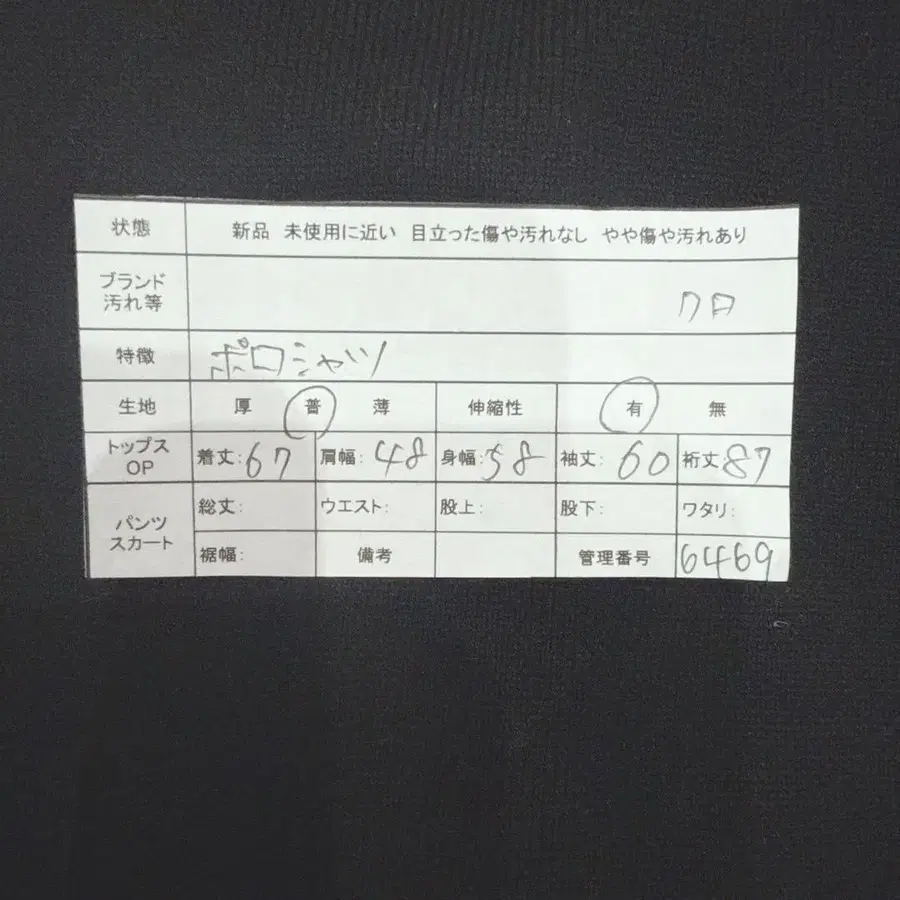 状態 新品 未使用に近い 目立った傷や汚れなし やや傷や汚れあり
ブランド
汚れ等 クロ
特徴 ポロシャツ
生地 厚 普 薄 伸縮性 有 無
トップス
OP 着丈:67 肩幅:48 身幅:58 袖丈:60 裄丈:87
パンツ
スカート 総丈: ウエスト: 股上: 股下: ワタリ:
裾幅: 備考 管理番号 6469